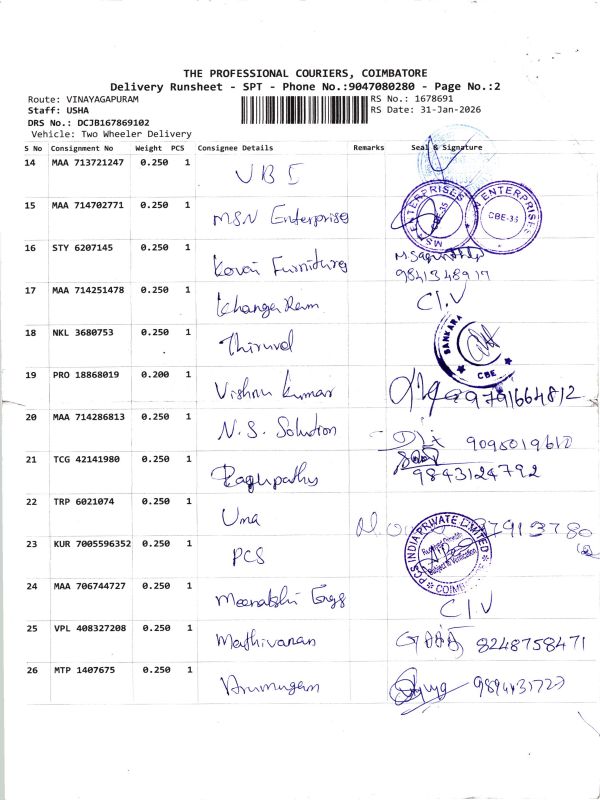 THE PROFESSIONAL COURIERS, COIMBATORE
Delivery Runsheet - SPT - Phone No.:9047080280 - Page No.:2
Route: VINAYAGAPURAM RS No.: 1678691
Staff: USHA RS Date: 31-Jan-2026
DRS No.: DCJB167869102
Vehicle: Two Wheeler Delivery
S No Consignment No Weight PCS Consignee Details Remarks Seal & Signature
14 MAA 713721247 0.250 1 UBI
15 MAA 714702771 0.250 1 MSN Enterprises CBE-35 ENTERPRISES CBE-35
16 STY 6207145 0.250 1 Kovai Furnitures
9841348917
17 MAA 714251478 0.250 1 KhangaRam C/.V
18 NKL 3680753 0.250 1 SANKARA CBE
19 PRO 18868019 0.200 1 Vishnu Kumar 9791664812
20 MAA 714286813 0.250 1 N.S. Solution 9095019610
21 TCG 42141980 0.250 1 Ragupathy 9843124792
22 TRP 6021074 0.250 1 Uma
23 KUR 7005596352 0.250 1 PCS PCS INDIA PRIVATE LIMITED
24 MAA 706744727 0.250 1 Meenakshi Enggs C/.V
25 VPL 408327208 0.250 1 Mathivanan 8248758471
26 MTP 1407675 0.250 1 Arumugam